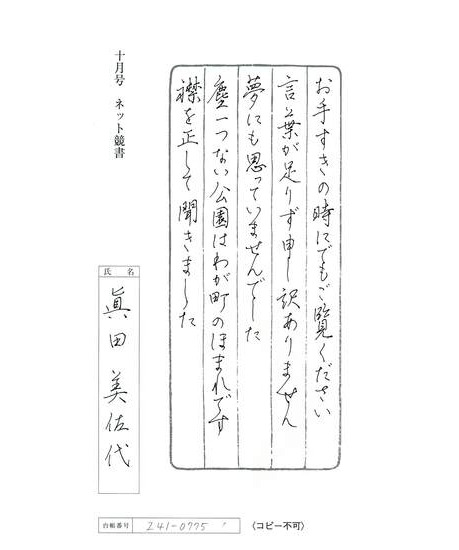 お手すきの時にでもご覧ください
言葉が足りず申し訳ありません
夢にも思っていませんでした
塵一つない公園はわが町のほまれです
襟を正して聞きました
十月号 ネット競書
氏名
眞田美佐代
台帳番号 241-0775
(コピー不可)